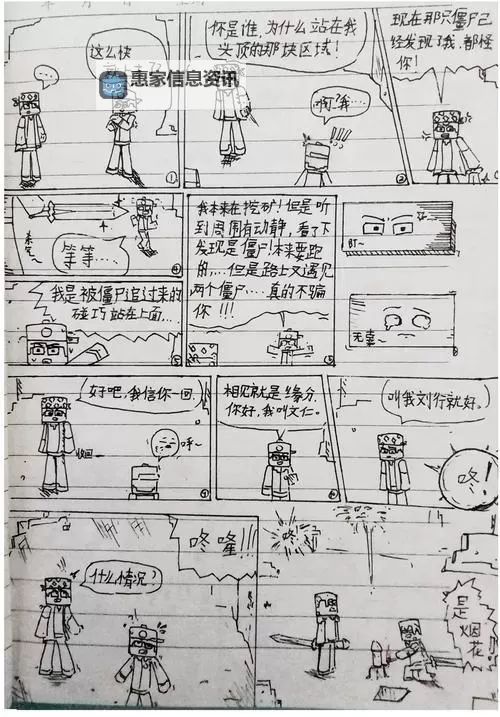 …
这么快
惠家信息资讯
①
你是谁,为什么站在我
头顶的那块区域!
啊?我…
!!!
②
现在那只僵尸已
经发现了我,都怪
你!
等等…
④
我是被僵尸追过来的
碰巧站在上面…
⑤
我本来在挖矿!但是听
到周围有动静,看了下
发现是僵尸!本来要跑
的,…但是路上又遇见
两个僵尸….真的不骗
你!!!
盯~
无辜~
好吧,我信你一回.
收回
呼~
相见就是缘分.
你好,我叫文仁.
叫我刘行就好.
咚!
什么情况?
咚嗵!!
咚!
是烟花